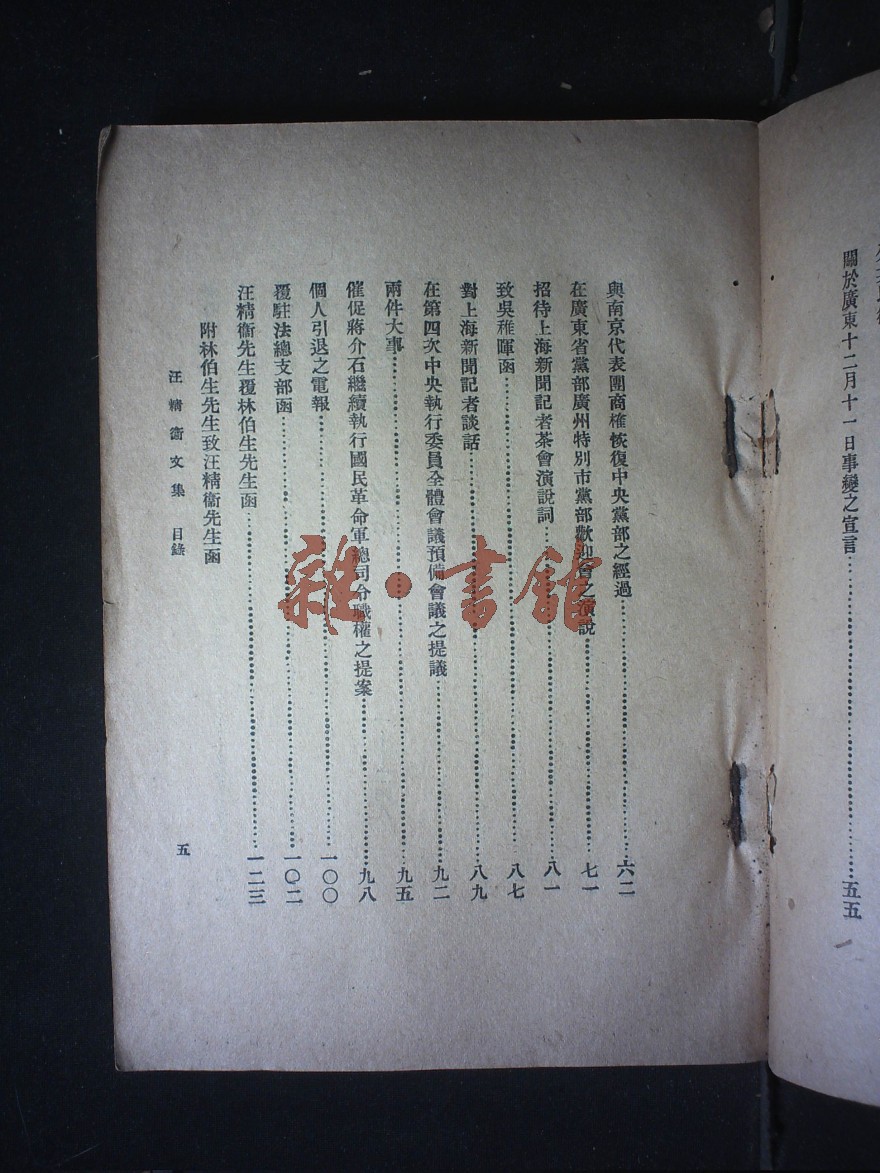 關於廣東十二月十一日事變之宣言……五五
與南京代表團商榷恢復中央黨部之經過……六二
在廣東省黨部廣州特別市黨部歡迎會之演說……七一
招待上海新聞記者茶會演說詞……八一
致吳稚暉函……八七
對上海新聞記者談話……八九
在第四次中央執行委員全體會議預備會議之提議……九二
兩件大事……九五
催促蔣介石繼續執行國民革命軍總司令職權之提案……九八
個人引退之電報……一〇〇
覆駐法總支部函……一〇二
汪精衞先生覆林伯生先生函……一二三
附林伯生先生致汪精衞先生函
汪精衞文集 目錄
五
雜·書館